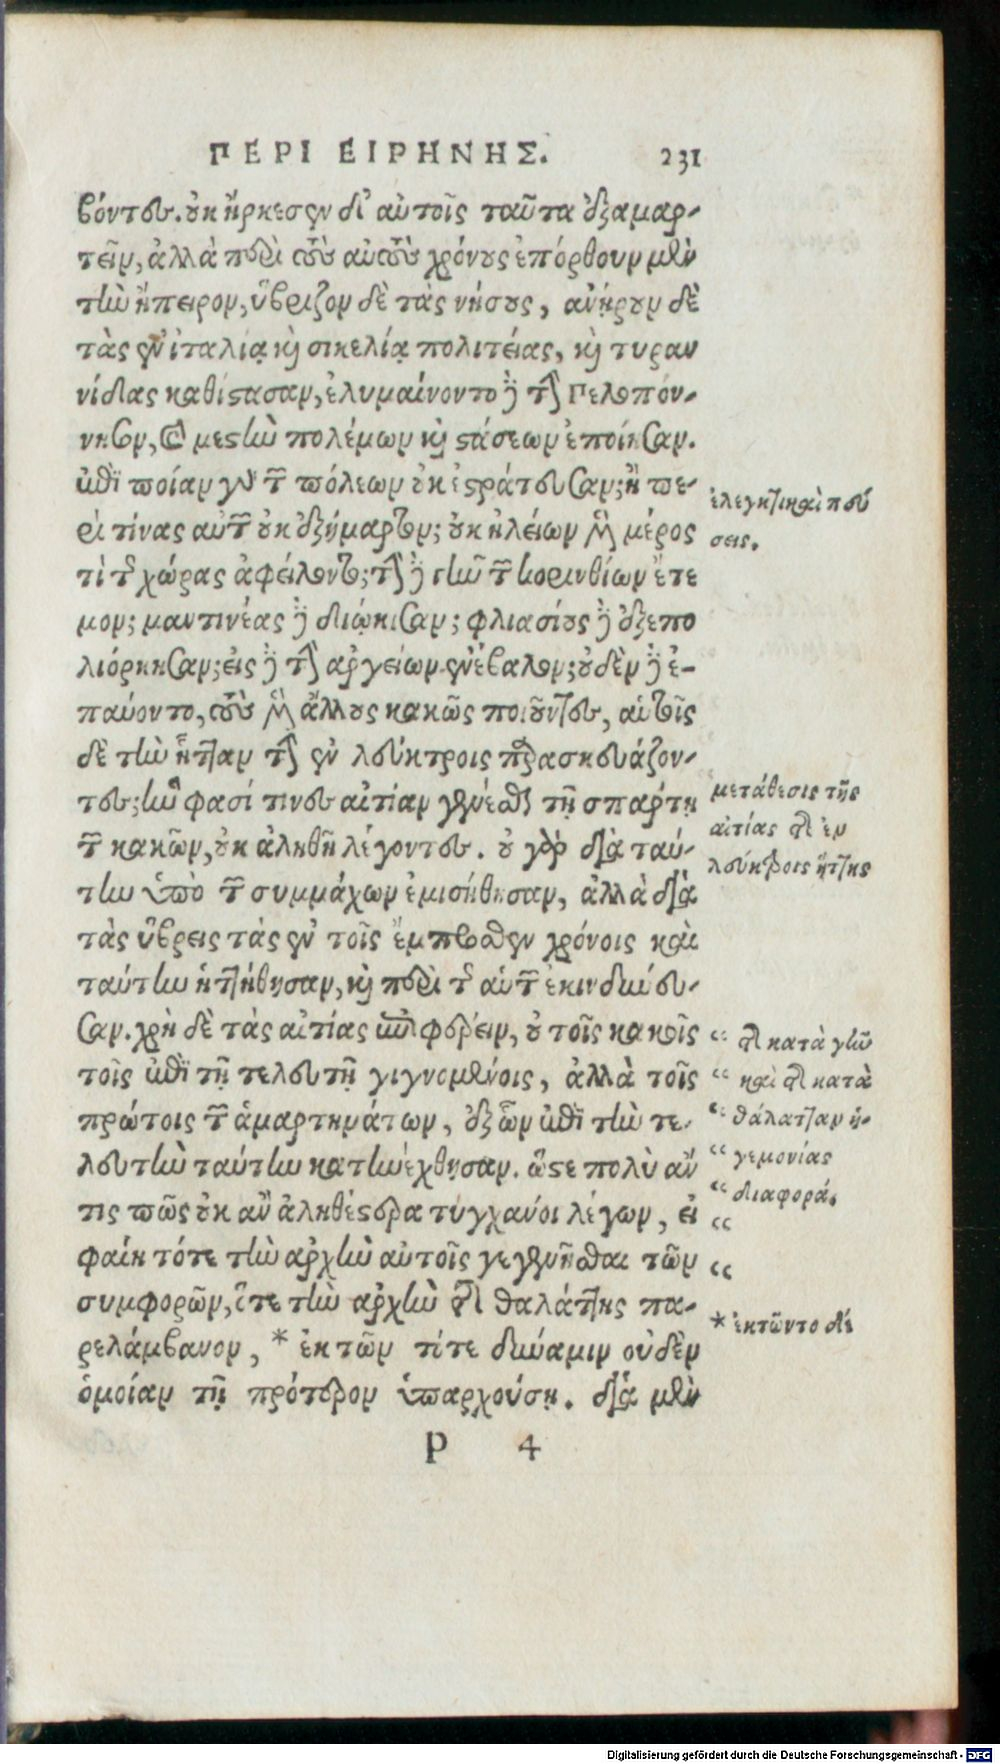 ΠΕΡΙ ΕΙΡΗΝΗΣ. 231
βόντες. οὐκ ἤρκεσεν δ᾽ αὐτοῖς ταῦτα ἐξαμαρ-
τεῖν, ἀλλὰ περὶ τοὺς αὐτοὺς χρόνους ἐπόρθουν μὲν
τὴν ἤπειρον, ὕβριζον δὲ τὰς νήσους, ἀνῄρουν δὲ
τὰς ἐν ἰταλίᾳ καὶ σικελίᾳ πολιτείας, καὶ τυραν
νίδας καθίστασαν, ἐλυμαίνοντο δὲ τὴν Πελοπόν-
νησον, καὶ μεστὴν πολέμων καὶ στάσεων ἐποίησαν.
ἐπὶ ποίαν γὰρ τῶν πόλεων οὐκ ἐστράτευσαν; ἢ πε-
ρὶ τίνας αὐτῶν οὐκ ἐξήμαρτον; οὐκ ἠλείων μὲν μέρος
τὶ τῆς χώρας ἀφείλοντο; τὴν δὲ γῆν τῶν κορινθίων ἔτε
μον; μαντινέας δὲ διῴκισαν; φλιασίους δὲ ἐξεπο
λιόρκησαν; εἰς δὲ τὴν ἀργείων ἐνέβαλον; οὐδὲν δὲ ἐ-
παύοντο, τοὺς μὲν ἄλλους κακῶς ποιοῦντες, αὑτοῖς
δὲ τὴν ἧτταν τὴν ἐν λεύκτροις παρασκευάζον-
τες; ἥν φασί τινες αἰτίαν γενέσθαι τῇ σπάρτῃ
τῶν κακῶν, οὐκ ἀληθῆ λέγοντες. οὐ γὰρ διὰ ταύ-
την ὑπὸ τῶν συμμάχων ἐμισήθησαν, ἀλλὰ διὰ
τὰς ὕβρεις τὰς ἐν τοῖς ἔμπροσθεν χρόνοις καὶ
ταύτην ἡττήθησαν, καὶ περὶ τῆς αὑτῶν ἐκινδύνευ-
σαν. χρὴ δὲ τὰς αἰτίας ἐπιφέρειν, οὐ τοῖς κακοῖς
τοῖς ἐπὶ τῇ τελευτῇ γιγνομένοις, ἀλλὰ τοῖς
πρώτοις τῶν ἁμαρτημάτων, ἐξ ὧν ἐπὶ τὴν τε-
λευτὴν ταύτην κατηνέχθησαν. ὥστε πολὺ ἄν
τις πῶς οὐκ ἂν ἀληθέστερα τυγχάνοι λέγων, εἰ
φαίη τότε τὴν ἀρχὴν αὐτοῖς γεγενῆσθαι τῶν
συμφορῶν, ὅτε τὴν ἀρχὴν τῆς θαλάττης πα-
ρελάμβανον, * ἐκ τῶν τίτε δύναμιν οὐδὲν
ὁμοίαν τῇ πρότερον ὑπαρχούσῃ. διὰ μὲν
P 4
ἐλεγκτικαὶ πεύ
σεις.
μετάθεσις τῆς
αἰτίας τῆς ἐν
λεύκτροις ἥττης
“ τῆς κατὰ γῆν
“ καὶ τῆς κατὰ
“ θάλατταν ἡ-
“ γεμονίας
“ διαφορά.
“
“
* ἐκτῶντο δέ
Digitalisierung gefördert durch die Deutsche Forschungsgemeinschaft - DFG